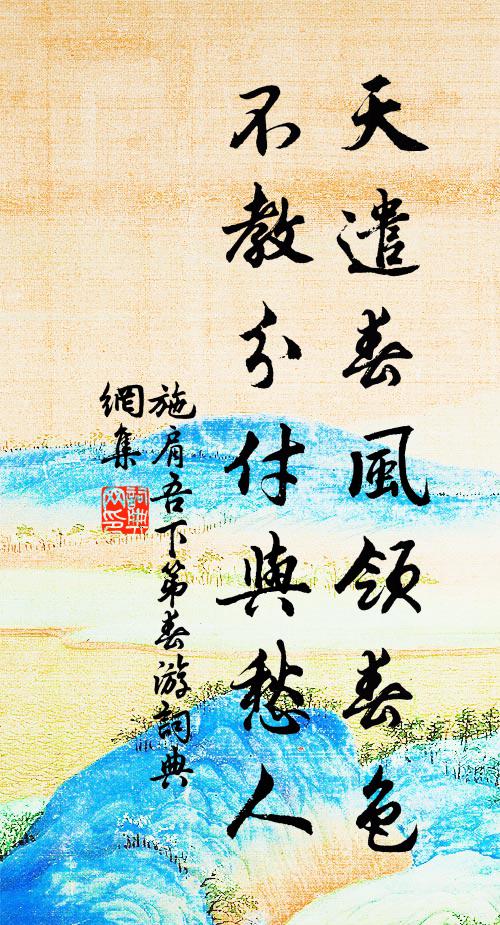 天遣春風領春色
不教分付與愁人
施肩吾下第春游詞典
網集
詞典
网印